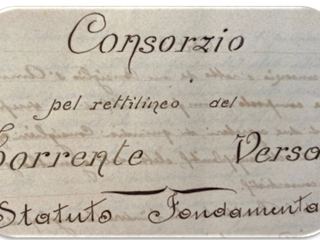 Consorzio
pel rettilineo del
Torrente Versa
Statuto Fondamenta